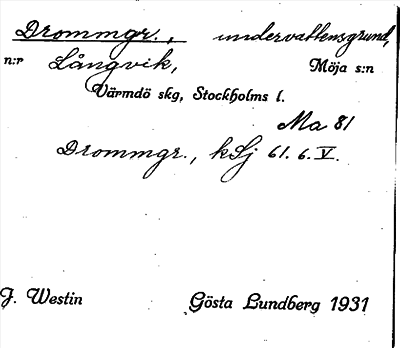 Drommgr., undervattensgrund,
n:r Långvik, Möja s:n
Värmdö skg, Stockholms l.
Ma 81
Drommgr., kSj 61. 6. V.
J. Westin Gösta Lundberg 1931